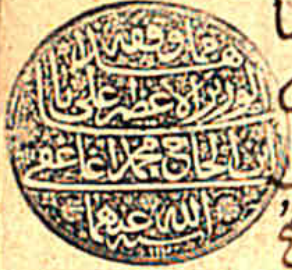 هذا مما وقفه
الوزير الاعظم على پاشا
ابن الحاج محمد اغا عفى
الله عنهما سنه